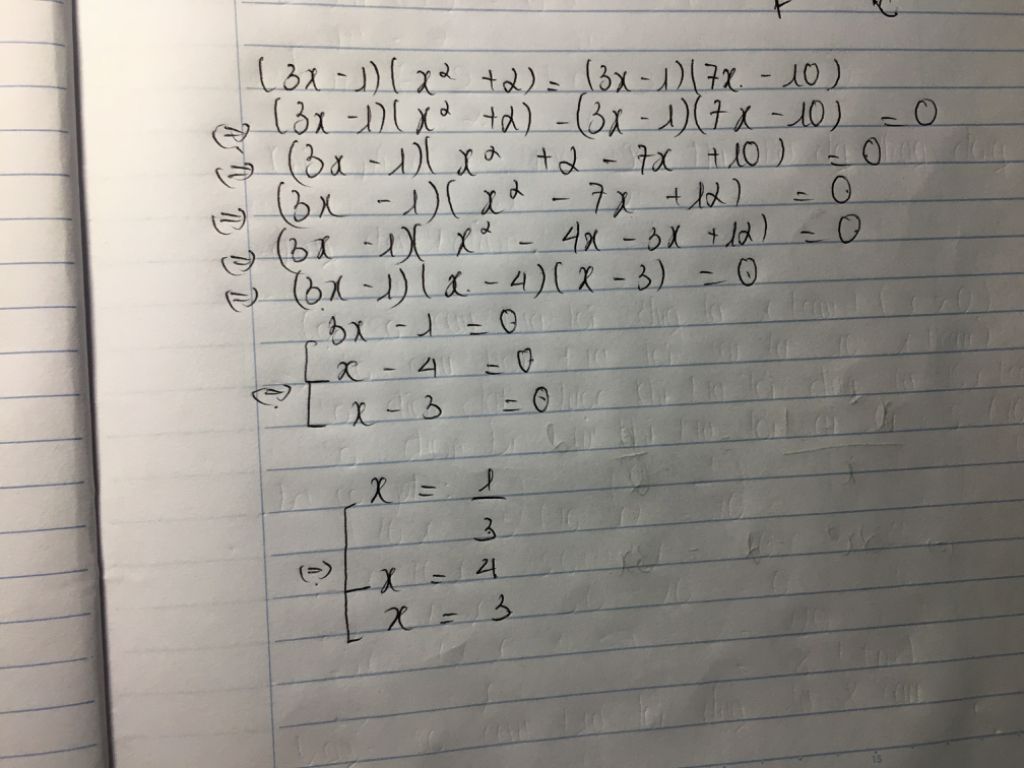 (3x - 1)(x² + 2) = (3x - 1)(7x - 10)
⇔ (3x - 1)(x² + 2) - (3x - 1)(7x - 10) = 0
⇔ (3x - 1)(x² + 2 - 7x + 10) = 0
⇔ (3x - 1)(x² - 7x + 12) = 0
⇔ (3x - 1)(x² - 4x - 3x + 12) = 0
⇔ (3x - 1)(x - 4)(x - 3) = 0
3x - 1 = 0
⇔ [ x - 4 = 0
x - 3 = 0
x = 1/3
⇔ [ x = 4
x = 3